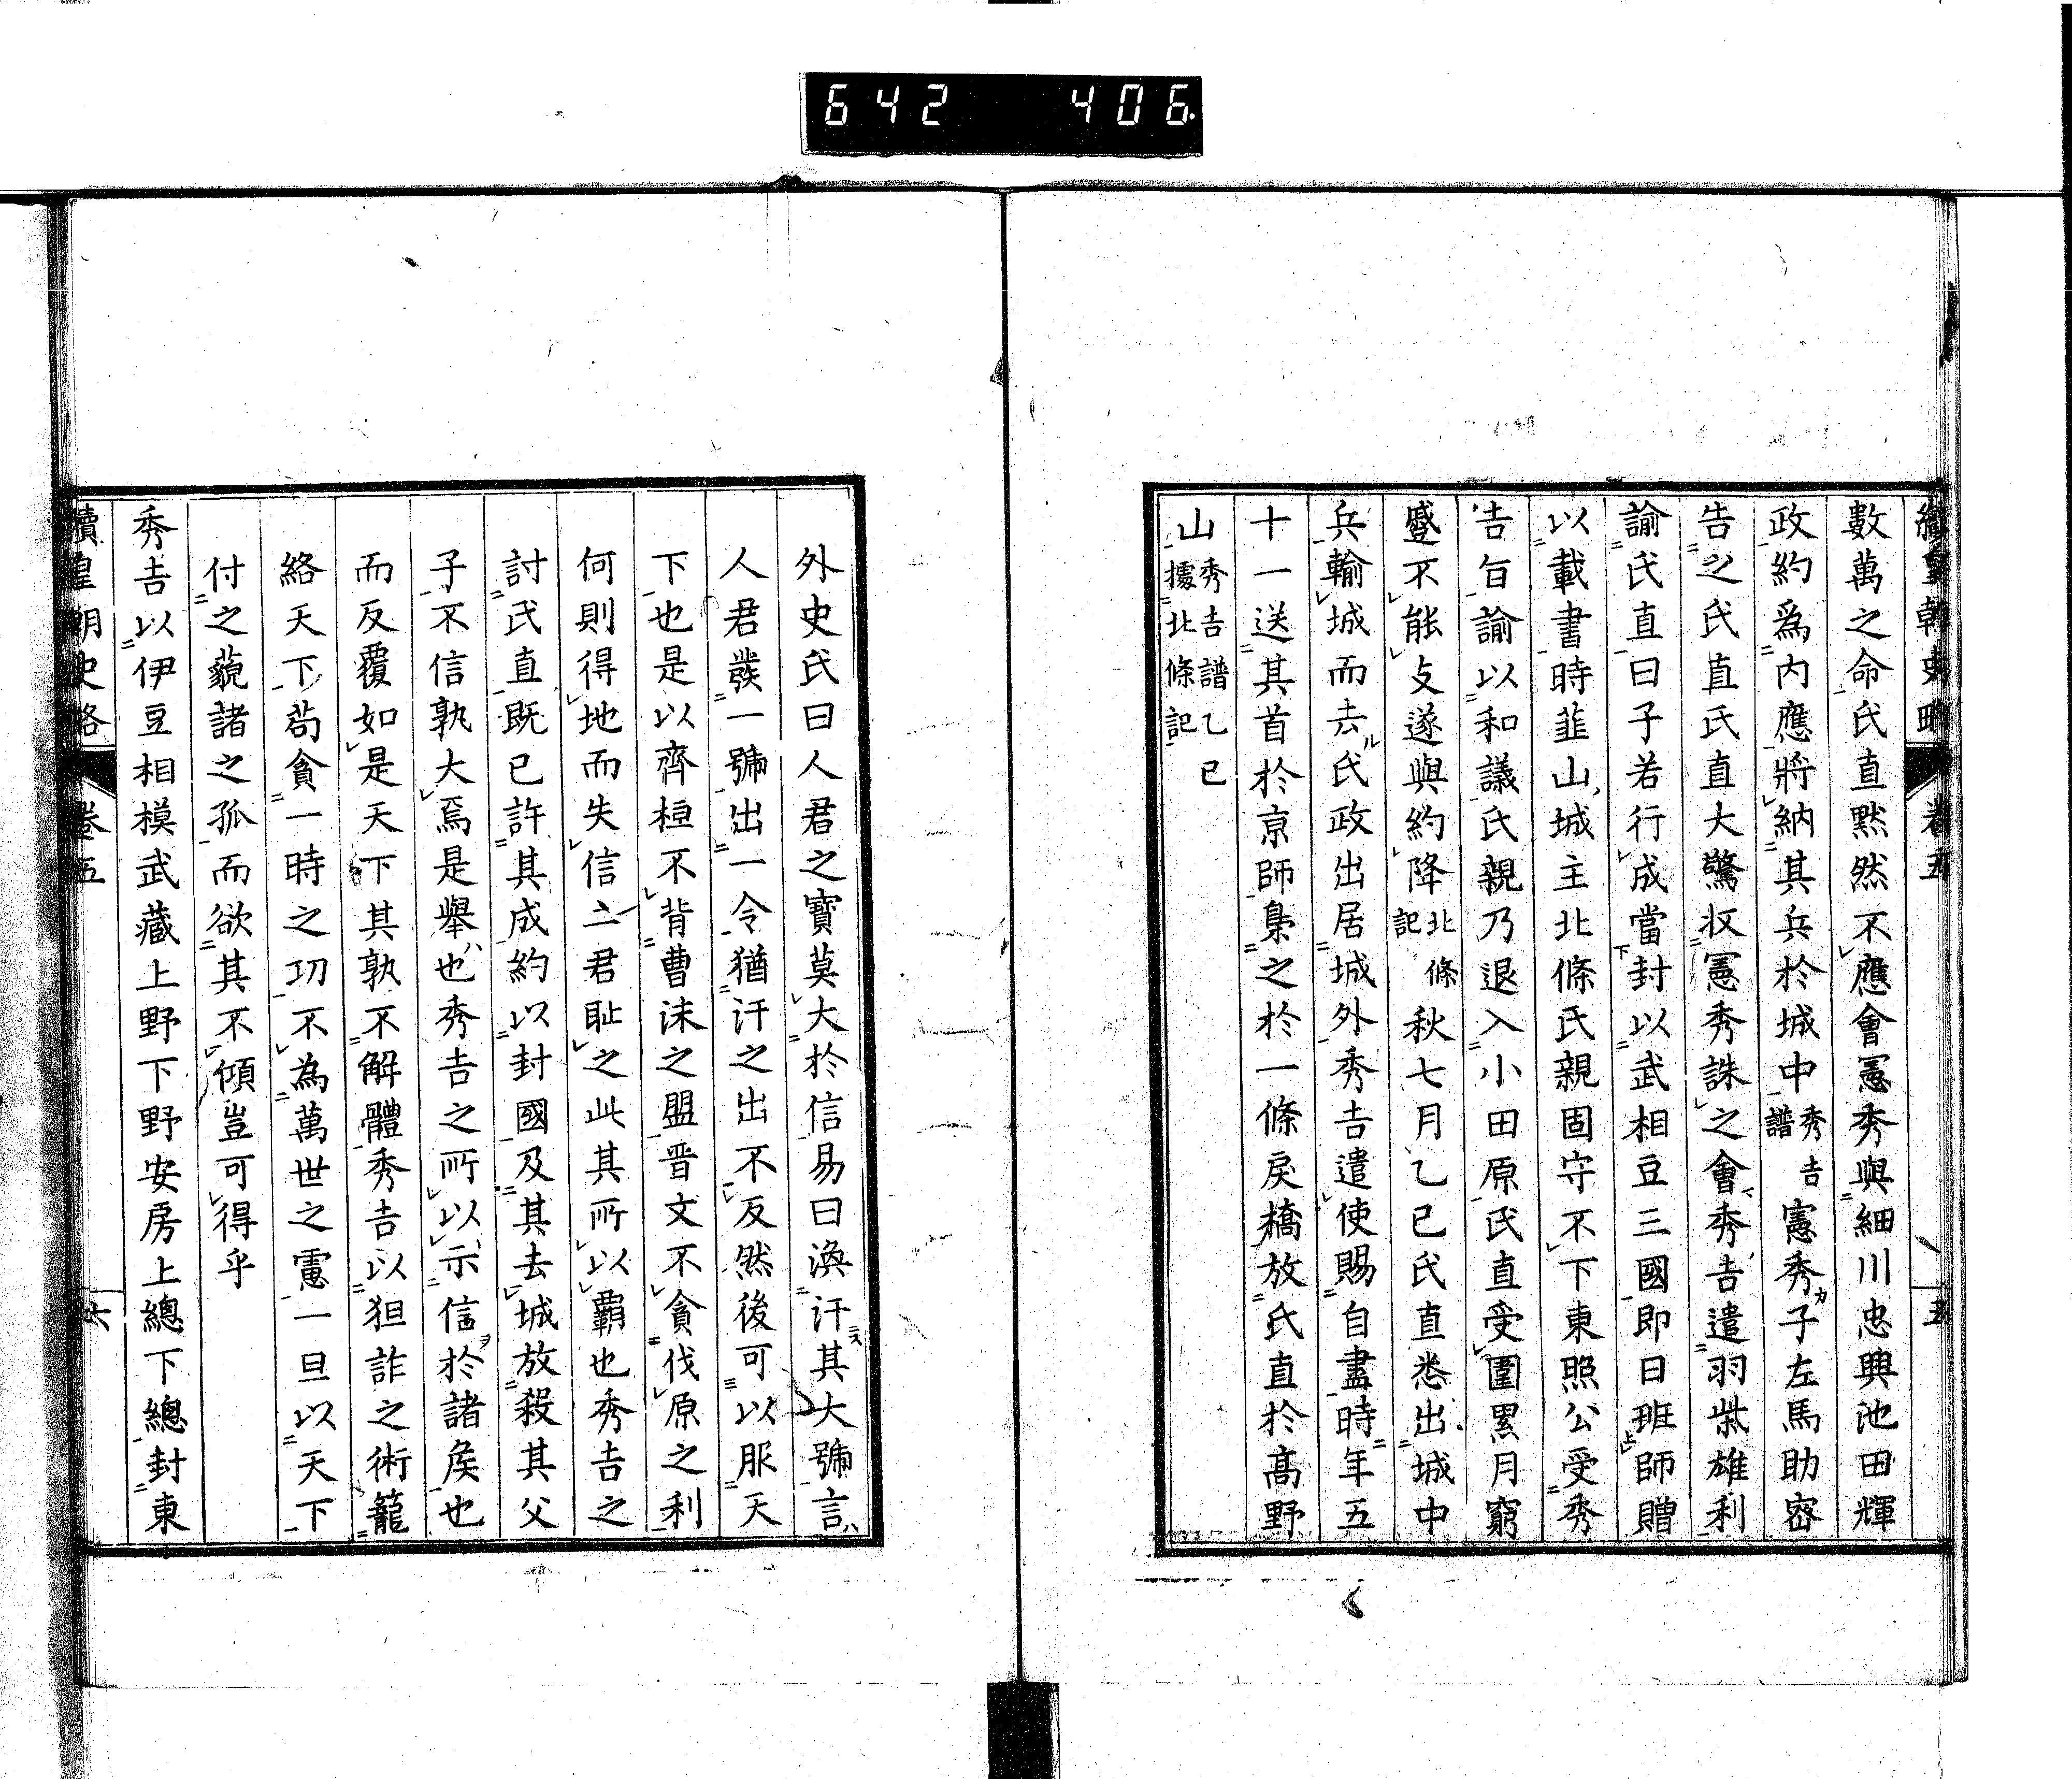 642 406
續皇朝史畧 卷五 五
數萬之命氏直黙然不應會憲秀與細川忠興池田輝
政約爲內應將納其兵於城中秀吉譜憲秀子左馬助密
告之氏直氏直大驚收憲秀誅之會秀吉遣羽柴雄利
諭氏直曰子若行成當封以武相豆三國即日班師贈
以載書時韮山城主北條氏親固守不下東照公受秀
吉旨諭以和議氏親乃退入小田原氏直受圍累月窮
蹙不能支遂與約降北條記秋七月乙巳氏直悉出城中
兵輸城而去氏政出居城外秀吉遣使賜自盡時年五
十一送其首於京師梟之於一條戾橋放氏直於高野
山秀吉譜乙巳據北條記
外史氏曰人君之寶莫大於信易曰渙汗其大號言
人君發一號出一令猶汗之出不反然後可以服天
下也是以齊桓不背曹沬之盟晋文不貪伐原之利
何則得地而失信二君恥之此其所以霸也秀吉之
討氏直既已許其成約以封國及其去城放殺其父
子不信孰大焉是舉也秀吉之所以示信於諸侯也
而反覆如是天下其孰不解體秀吉以狙詐之術籠
絡天下苟貪一時之功不為萬世之慮一旦以天下
付之藐諸之孤而欲其不傾豈可得乎
秀吉以伊豆相模武藏上野下野安房上總下總封東
續皇朝史略 卷五 六